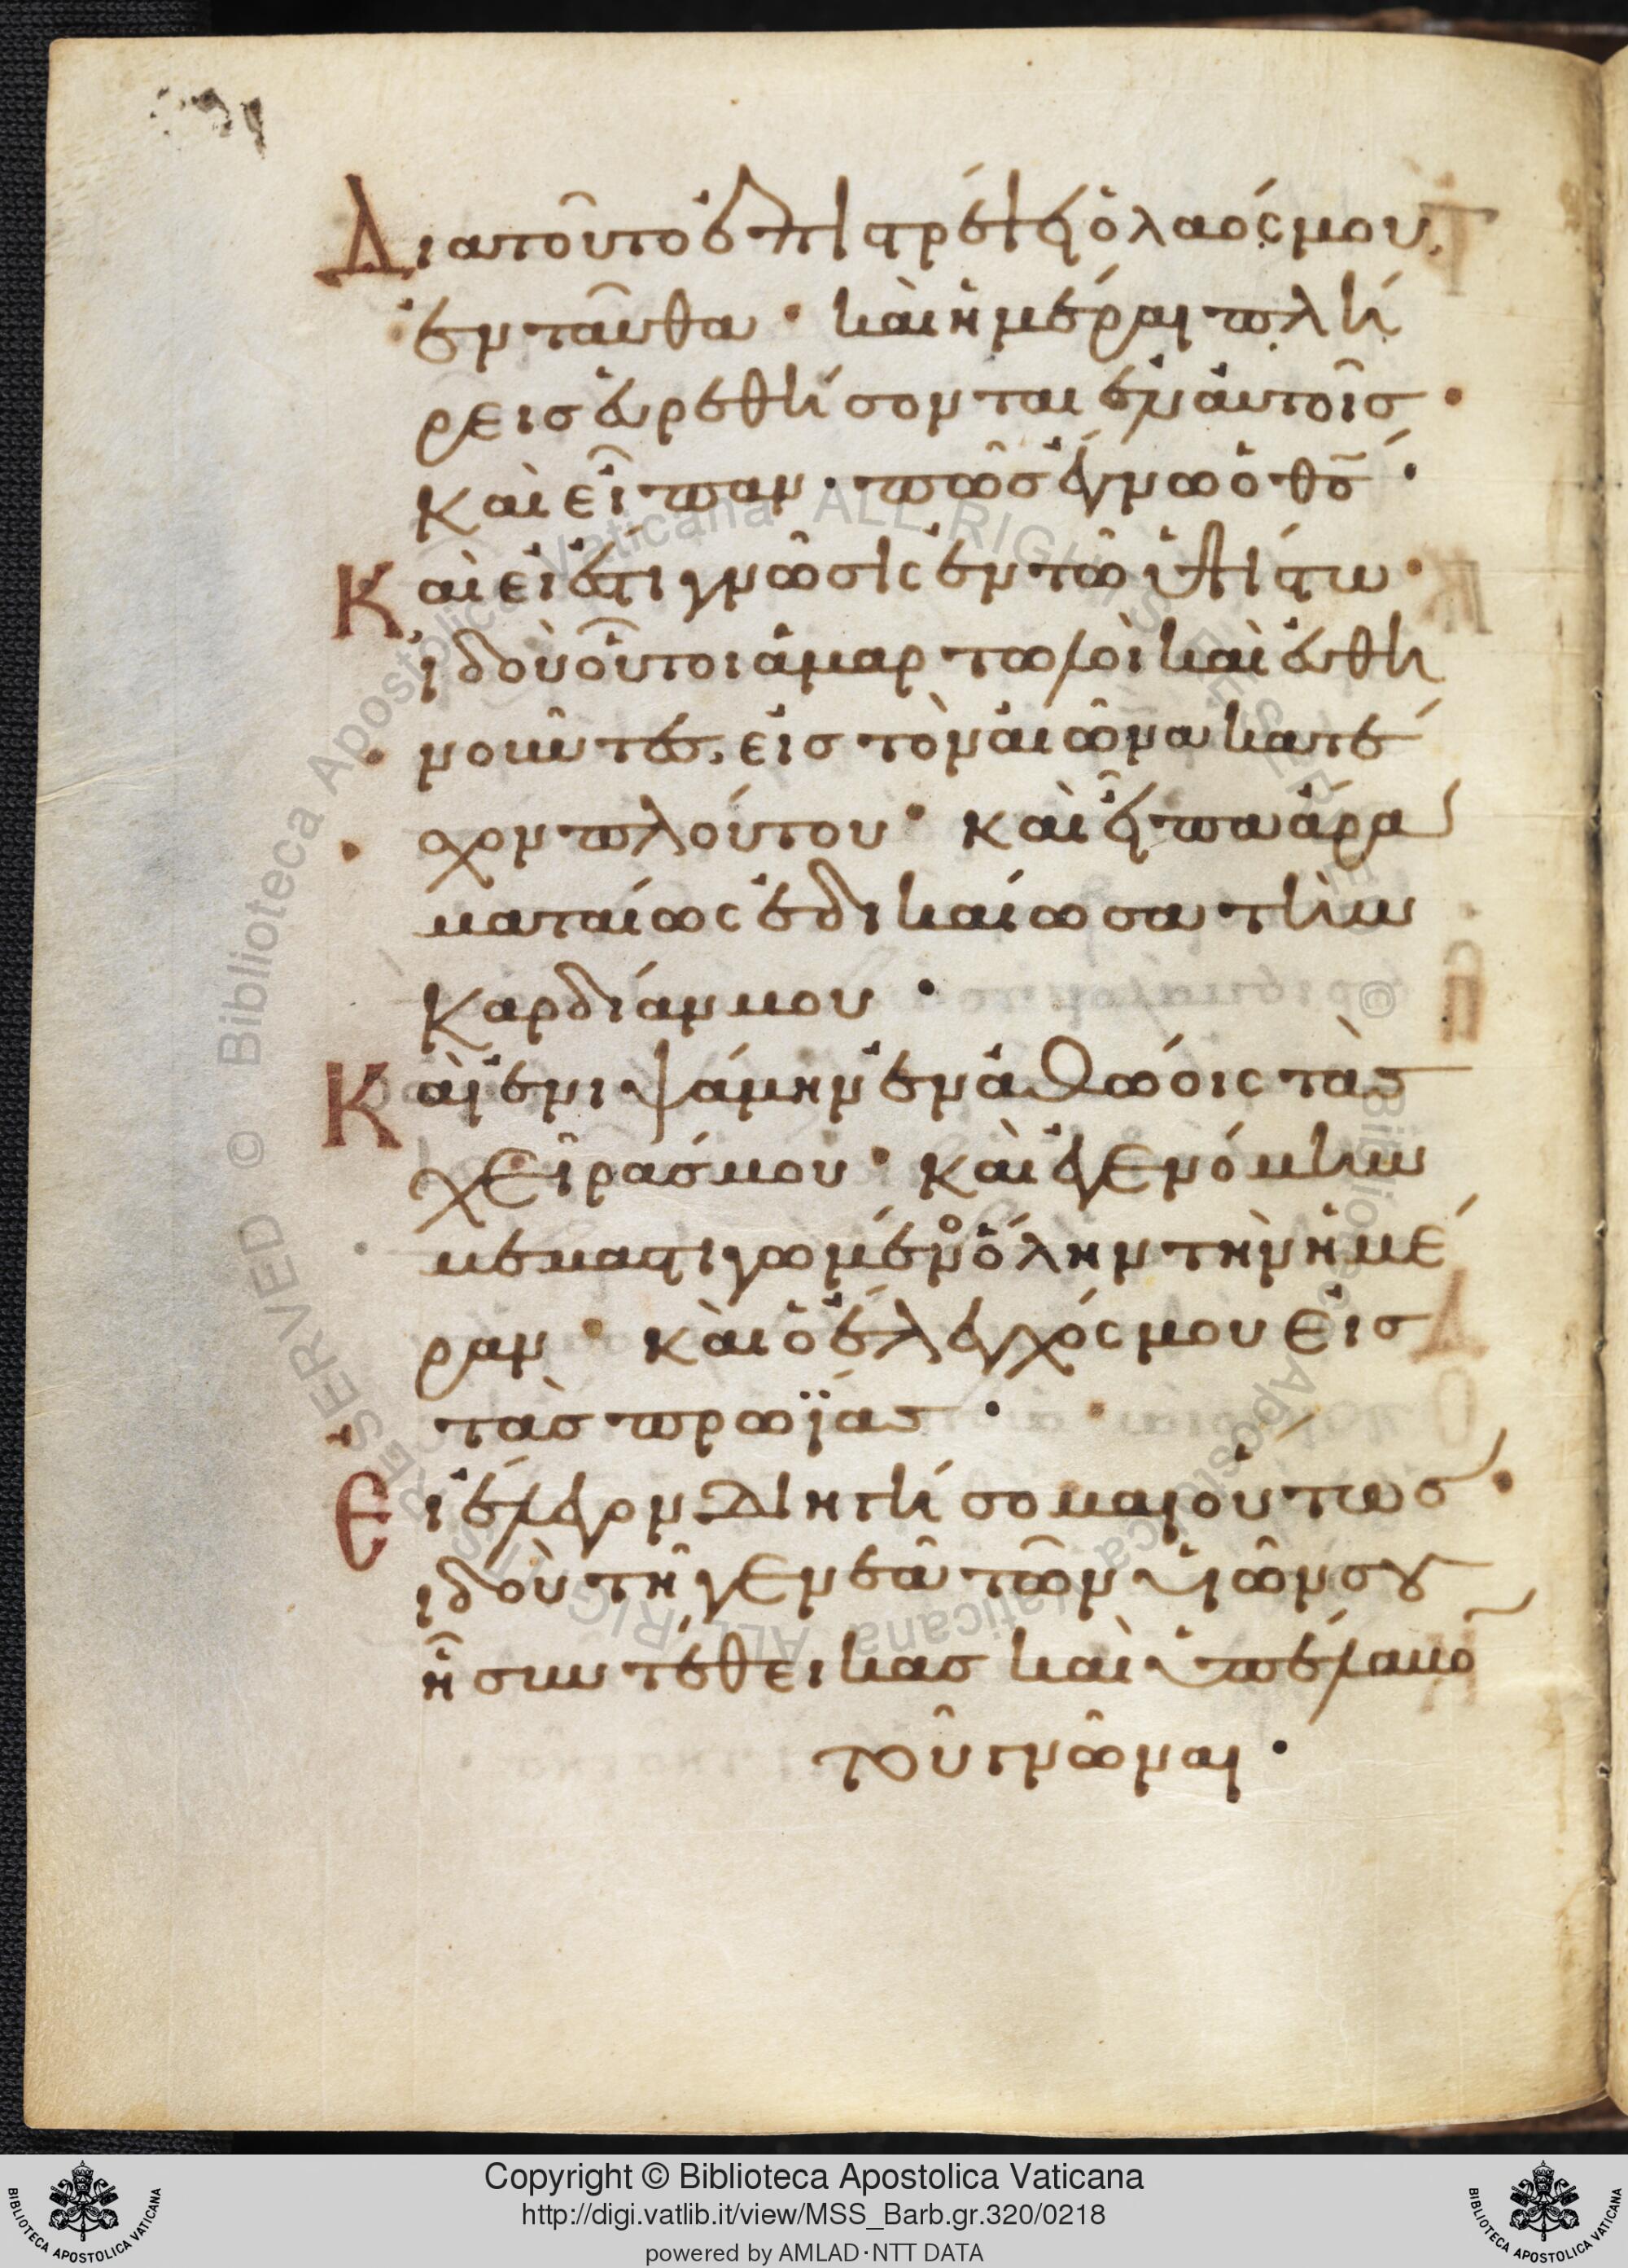 Διατοῦτο ἐπιστρέψει ὁ λαός μου
ἐνταῦθα · καὶ ἡμέραι πλή
ρεις εὑρεθήσονται ἐν αὐτοῖς ·
Καὶ εἶπαν · πῶς ἔγνω ὁ θς ·
Καὶ εἰ ἔστι γνῶσις ἐν τῶ ὑψίστω ·
ἰδοὺ οὗτοι ἁμαρτωλοὶ καὶ εὐθη
νοῦντες, εἰς τὸν αἰῶνα κατέ
χον πλούτου · καὶ εἶπα ἄρα
ματαίως ἐδικαίωσα τὴν
Καρδίαν μου ·
Καὶ ἐνιψάμην ἐν ἀθώοις τὰς
χεῖρας μου · καὶ ἐγενόμην
μεμαστιγωμένος ὅλην τὴν ἡμέ
ραν · καὶ ὁ ἔλεγχός μου εἰς
τὰς πρωΐας ·
Εἰ ἔλεγον διηγήσομαι οὕτως ·
ἰδοὺ τῆ γενεᾶ τῶν υἱῶν σου
ἧ συντέθεικας καὶ ὑπέλαβον
τοῦ γνῶναι ·
Copyright © Biblioteca Apostolica Vaticana
http://digi.vatlib.it/view/MSS_Barb.gr.320/0218
powered by AMLAD·NTT DATA